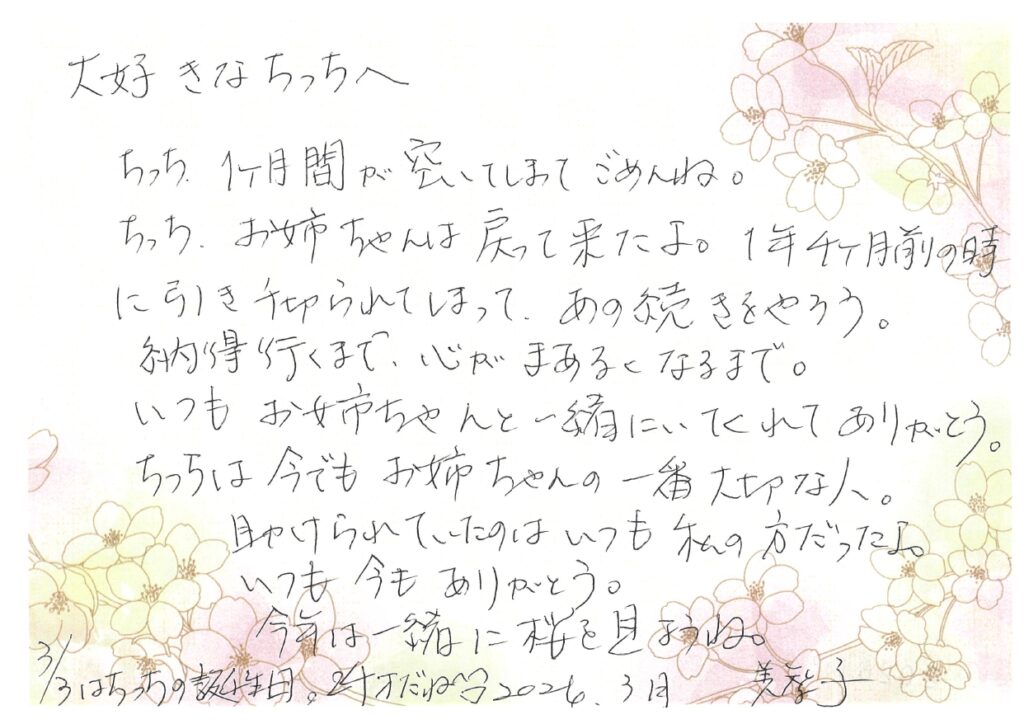 大好きなちっちへ
ちっち、1ヶ月間が空いてしまってごめんね。
ちっち、お姉ちゃんは戻って来たよ。1年4ヶ月前の時
に引き千切られてしまって、あの続きをやろう。
納得行くまで、心がまあるくなるまで。
いつもお姉ちゃんと一緒にいてくれてありがとう。
ちっちは今でもお姉ちゃんの一番大切な人。
助けられていたのはいつも私の方だったよ。
いつも今もありがとう。
今年は一緒に桜を見ようね。
3/3はちっちの誕生日。 才だね 2026.3月